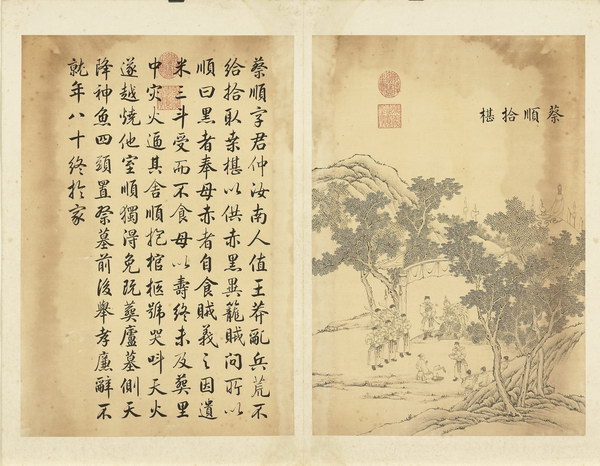 蔡順拾椹
蔡順字君仲汝南人值王莽亂兵荒不
給拾取桒椹以供赤黑異籠賊問所以
順曰黑者奉母赤者自食賊義之因遺
米三斗受而不食母以壽終未及葬里
中灾火逼其舍順抱棺柩號哭呌天火
遂越燒他室順獨得免既葬廬墓側天
降神魚四頭置祭墓前後舉孝廉辭不
就年八十終於家